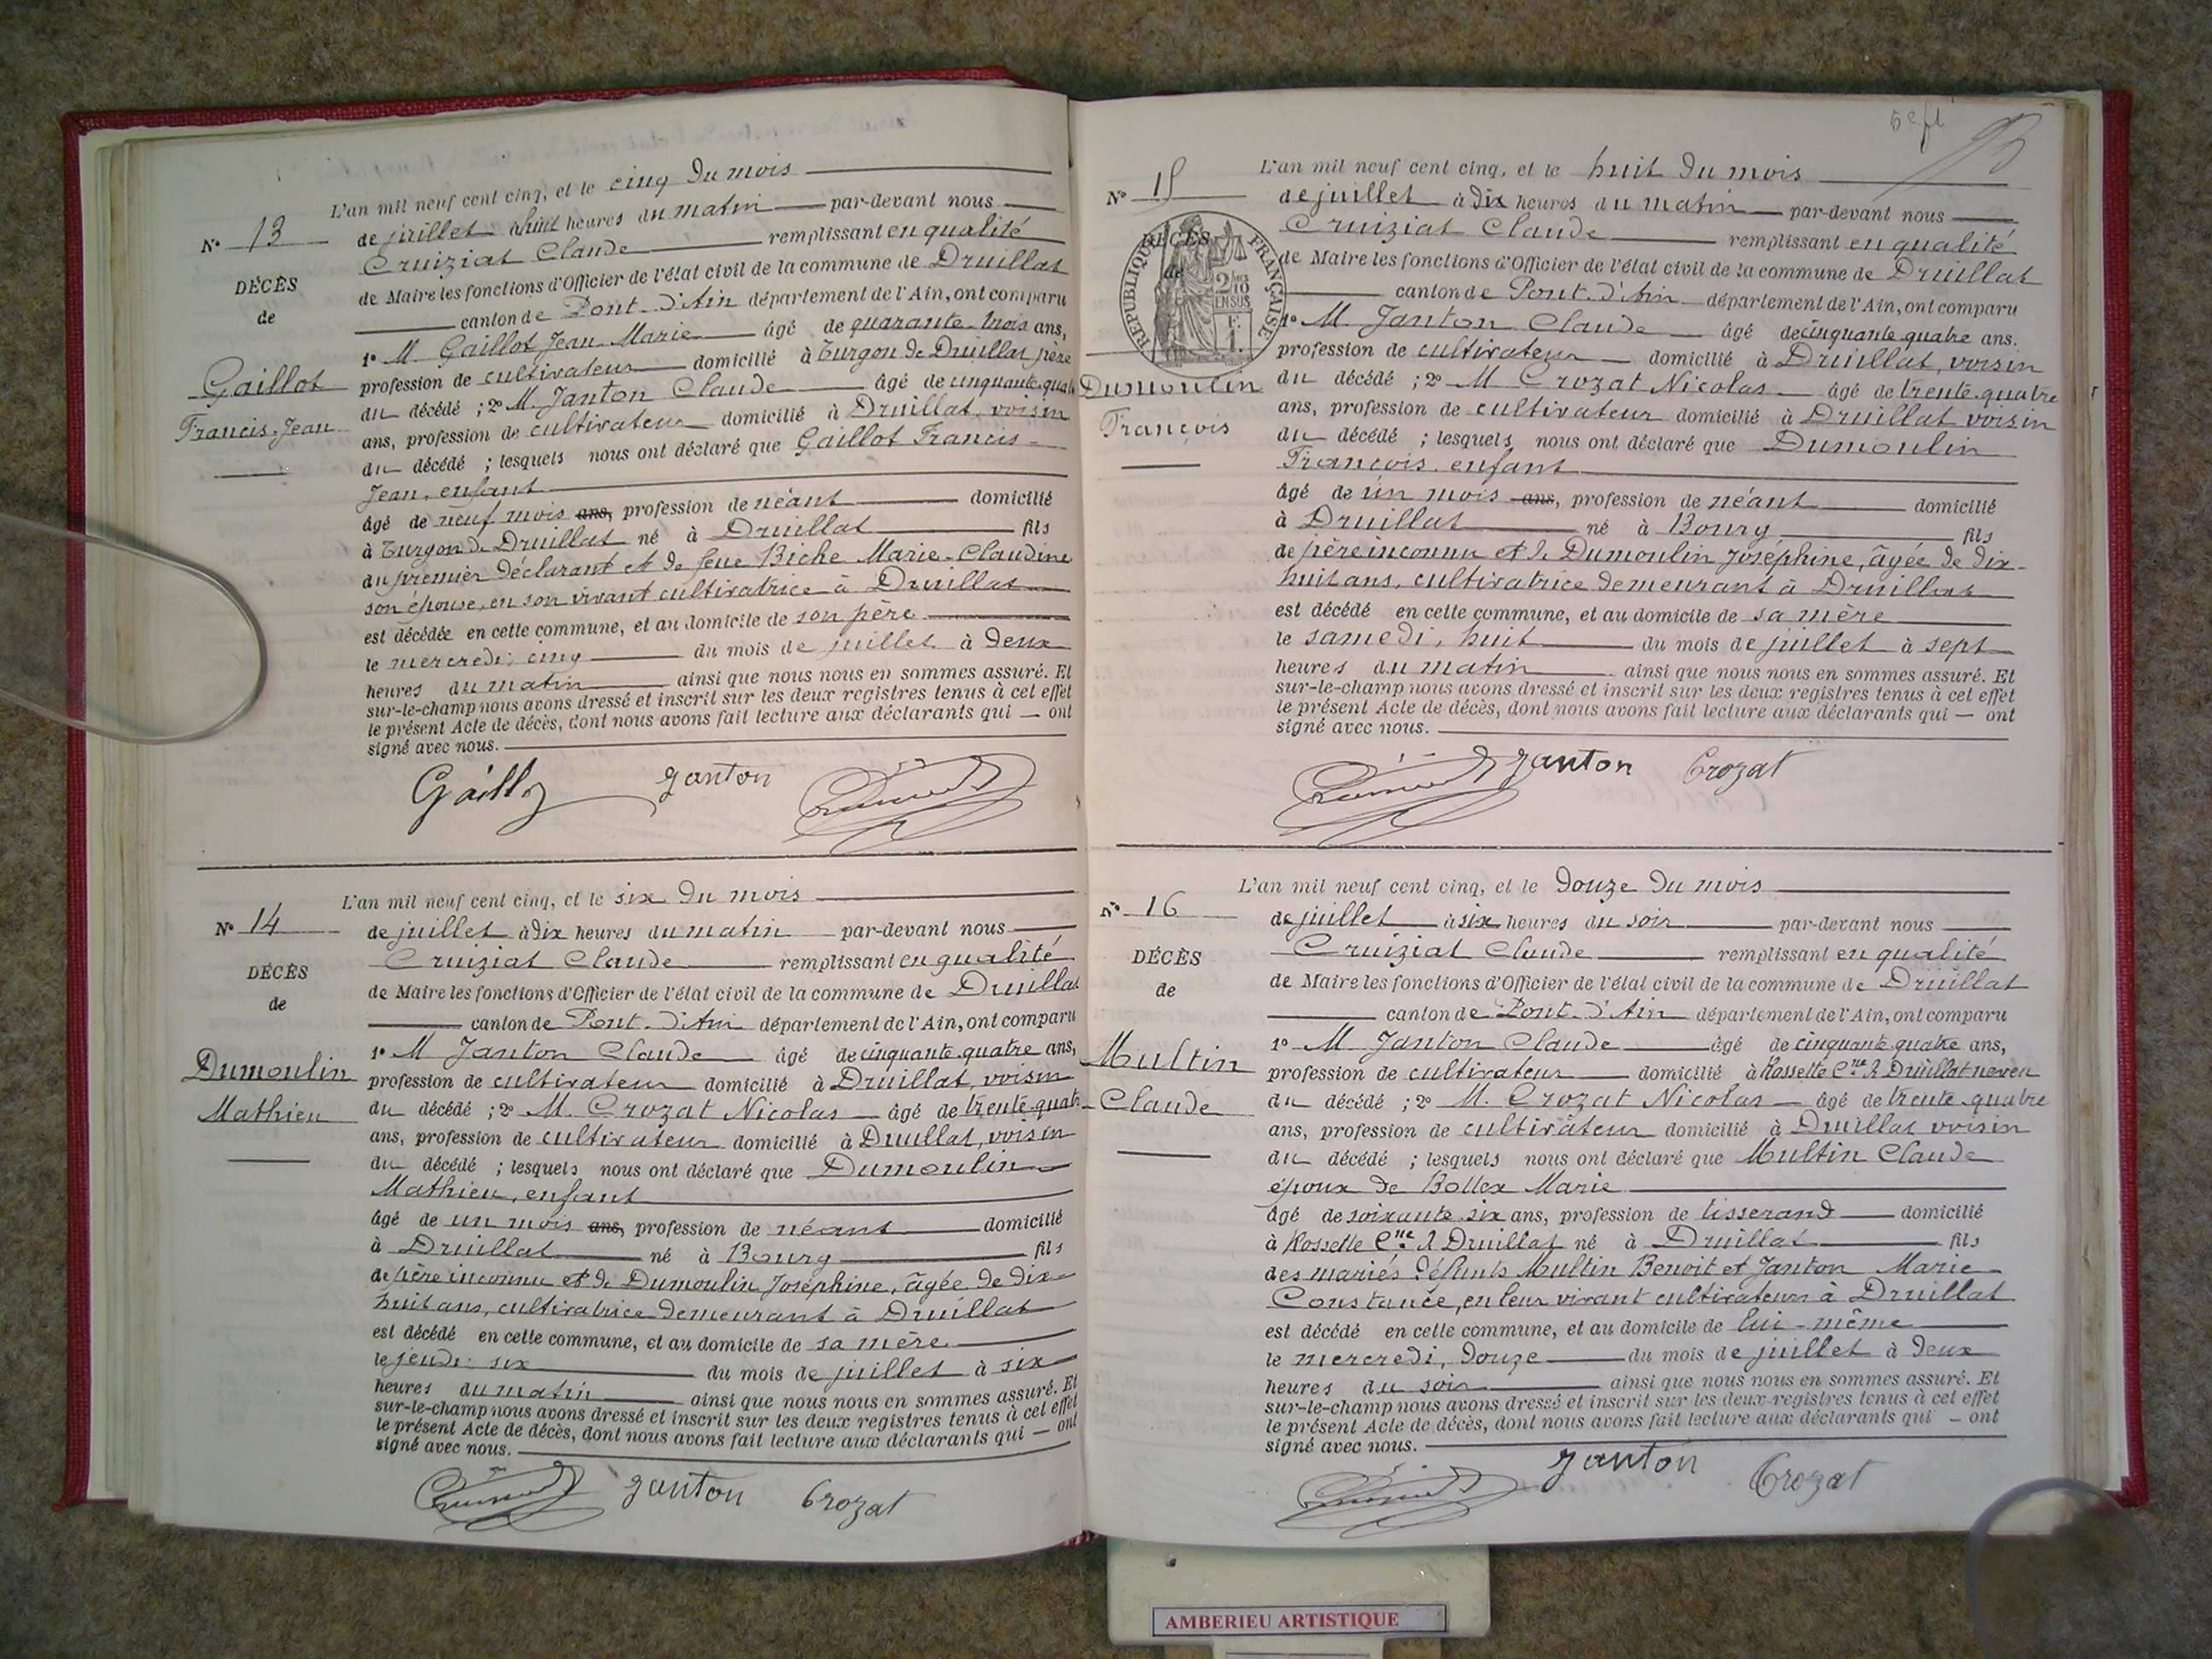 L'an mil neuf cent cinq, et le cinq du mois
N° 13
de juillet à huit heures du matin par-devant nous
Cruiziat Claude remplissant en qualité
DÉCÈS
de Maire les fonctions d'Officier de l'état civil de la commune de Druillat
de
canton de Pont-d'Ain département de l'Ain, ont comparu
1° M. Gaillot Jean-Marie âgé de quarante-trois ans,
Gaillot
profession de cultivateur domicilié à Turgon de Druillat père
du décédé ; 2° M. Janton Claude âgé de cinquante-quatre
Francis-Jean
ans, profession de cultivateur domicilié à Druillat, voisin
du décédé ; lesquels nous ont déclaré que Gaillot Francis-
Jean, enfant
âgé de neuf mois ans, profession de néant domicilié
à Turgon de Druillat né à Druillat fils
du premier déclarant et de feue Biche Marie-Claudine
son épouse, en son vivant cultivatrice à Druillat
est décédée en cette commune, et au domicile de son père
le mercredi, cinq du mois de juillet à deux
heures du matin ainsi que nous nous en sommes assuré. Et
sur-le-champ nous avons dressé et inscrit sur les deux registres tenus à cet effet
le présent Acte de décès, dont nous avons fait lecture aux déclarants qui — ont
signé avec nous.
Gaillot Janton
L'an mil neuf cent cinq, et le six du mois
N° 14
de juillet à dix heures du matin par-devant nous
Cruiziat Claude remplissant en qualité
DÉCÈS
de Maire les fonctions d'Officier de l'état civil de la commune de Druillat
de
canton de Pont-d'Ain département de l'Ain, ont comparu
1° M Janton Claude âgé de cinquante-quatre ans,
Dumoulin
profession de cultivateur domicilié à Druillat, voisin
Mathieu
du décédé ; 2° M. Crozat Nicolas âgé de trente-quatre
ans, profession de cultivateur domicilié à Druillat, voisin
du décédé ; lesquels nous ont déclaré que Dumoulin
Mathieu, enfant
âgé de un mois ans, profession de néant domicilié
à Druillat né à Bourg fils
de père inconnu et de Dumoulin Joséphine, âgée de dix-
huit ans, cultivatrice demeurant à Druillat
est décédé en cette commune, et au domicile de sa mère
le jeudi six du mois de juillet à six
heures du matin ainsi que nous nous en sommes assuré. Et
sur-le-champ nous avons dressé et inscrit sur les deux registres tenus à cet effet
le présent Acte de décès, dont nous avons fait lecture aux déclarants qui — ont
signé avec nous.
Janton Crozat
L'an mil neuf cent cinq, et le huit du mois
N° 15
de juillet à dix heures du matin par-devant nous
Cruiziat Claude remplissant en qualité
DÉCÈS
de
RÉPUBLIQUE FRANÇAISE
de Maire les fonctions d'Officier de l'état civil de la commune de Druillat
canton de Pont-d'Ain département de l'Ain, ont comparu
1° M Janton Claude âgé de cinquante quatre ans.
profession de cultivateur domicilié à Druillat, voisin
Dumoulin
du décédé ; 2° M Crozat Nicolas âgé de trente-quatre
François
ans, profession de cultivateur domicilié à Druillat voisin
du décédé ; lesquels nous ont déclaré que Dumoulin
François, enfant
âgé de un mois ans, profession de néant domicilié
à Druillat né à Bourg fils
de père inconnu et de Dumoulin Joséphine, âgée de dix-
huit ans, cultivatrice demeurant à Druillat
est décédé en cette commune, et au domicile de sa mère
le samedi, huit du mois de juillet à sept
heures du matin ainsi que nous nous en sommes assuré. Et
sur-le-champ nous avons dressé et inscrit sur les deux registres tenus à cet effet
le présent Acte de décès, dont nous avons fait lecture aux déclarants qui — ont
signé avec nous.
Janton Crozat
L'an mil neuf cent cinq, et le douze du mois
N° 16
de juillet à six heures du soir par-devant nous
Cruiziat Claude remplissant en qualité
DÉCÈS
de Maire les fonctions d'Officier de l'état civil de la commune de Druillat
de
canton de Pont-d'Ain département de l'Ain, ont comparu
1° M Janton Claude âgé de cinquante quatre ans,
Multin
profession de cultivateur domicilié à Rossette Cne de Druillat neveu
Claude
du décédé ; 2° M. Crozat Nicolas âgé de trente-quatre
ans, profession de cultivateur domicilié à Druillat voisin
du décédé ; lesquels nous ont déclaré que Multin Claude
époux de Bollex Marie
âgé de soixante six ans, profession de tisserand domicilié
à Rossette Cne de Druillat né à Druillat fils
des mariés défunts Multin Benoit et Janton Marie
Constance, en leur vivant cultivateurs à Druillat
est décédé en cette commune, et au domicile de lui-même
le mercredi, douze du mois de juillet à deux
heures du soir ainsi que nous nous en sommes assuré. Et
sur-le-champ nous avons dressé et inscrit sur les deux registres tenus à cet effet
le présent Acte de décès, dont nous avons fait lecture aux déclarants qui — ont
signé avec nous.
Janton Crozat
AMBERIEU ARTISTIQUE